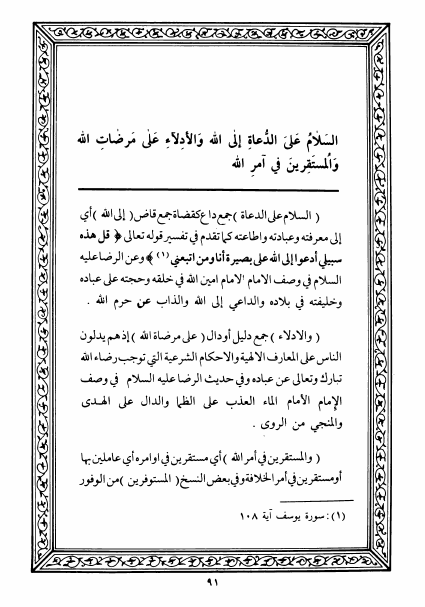 السَلامُ عَلىَ الدُّعاةِ إلى الله وَالأدِلآءِ عَلىٰ مَرضٰاتِ الله
وَالمُستَقِرينَ في آمرِ الله
( السلام على الدعاة ) جمع داع كقضاة جمع قاض ( إلى الله ) أي
إلى معرفته وعبادته واطاعته كما تقدم في تفسير قوله تعالى ﴿ قل هذه
سبيلي أدعوا إلى الله على بصيرة أنا ومن اتبعني (١) ﴾ وعن الرضا عليه
السلام في وصف الامام الامام امين الله في خلقه وحجته على عباده
وخليفته في بلاده والداعي إلى الله والذاب عن حرم الله .
( والادلاء ) جمع دليل أو دال ( على مرضاة الله ) إذ هم يدلون
الناس على المعارف الالهية والاحكام الشرعية التي توجب رضاء الله
تبارك وتعالى عن عباده وفي حديث الرضا عليه السلام في وصف
الإمام الأمام الماء العذب على الظما والدال على الهدى
والمنجي من الروى .
( والمستقرين في أمر الله ) أي مستقرين في اوامره أي عاملين بها
أو مستقرين في أمر الخلافة وفي بعض النسخ ( المستوفرين ) من الوفور
(١) : سورة يوسف آية ١٠٨
٩١